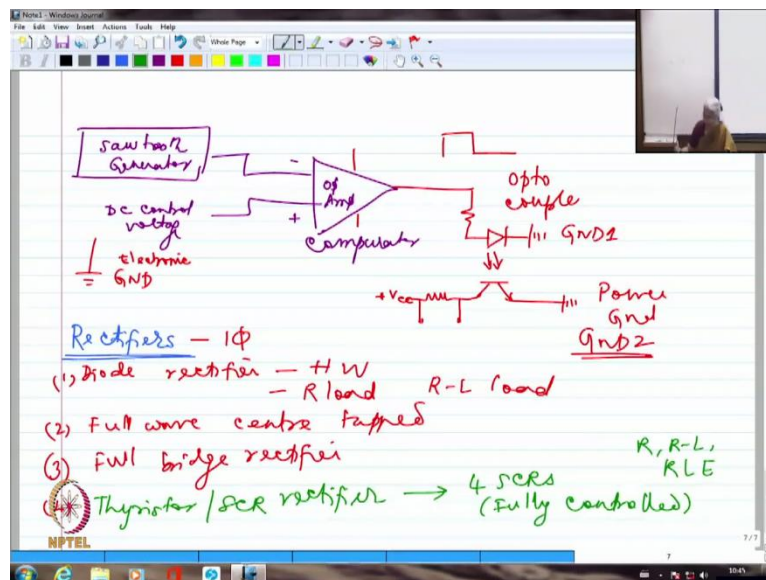 Note1 - Windows Journal
File Edit View Insert Actions Tools Help
Whole Page
Sawtooth
Generator
DC control
voltage
Electronic
GND
-
+
Op
Amp
Comparator
Opto
couple
GND1
+Vcc
Power
Gnd
GND2
Rectifiers - 1Φ
(1) Diode rectifier - HW
- R load R-L load
(2) Full wave centre tapped
(3) Full bridge rectifier
(4) Thyristor/SCR rectifier → 4 SCRs
(Fully controlled)
R, R-L,
RLE
NPTEL
7/7
7
10:45